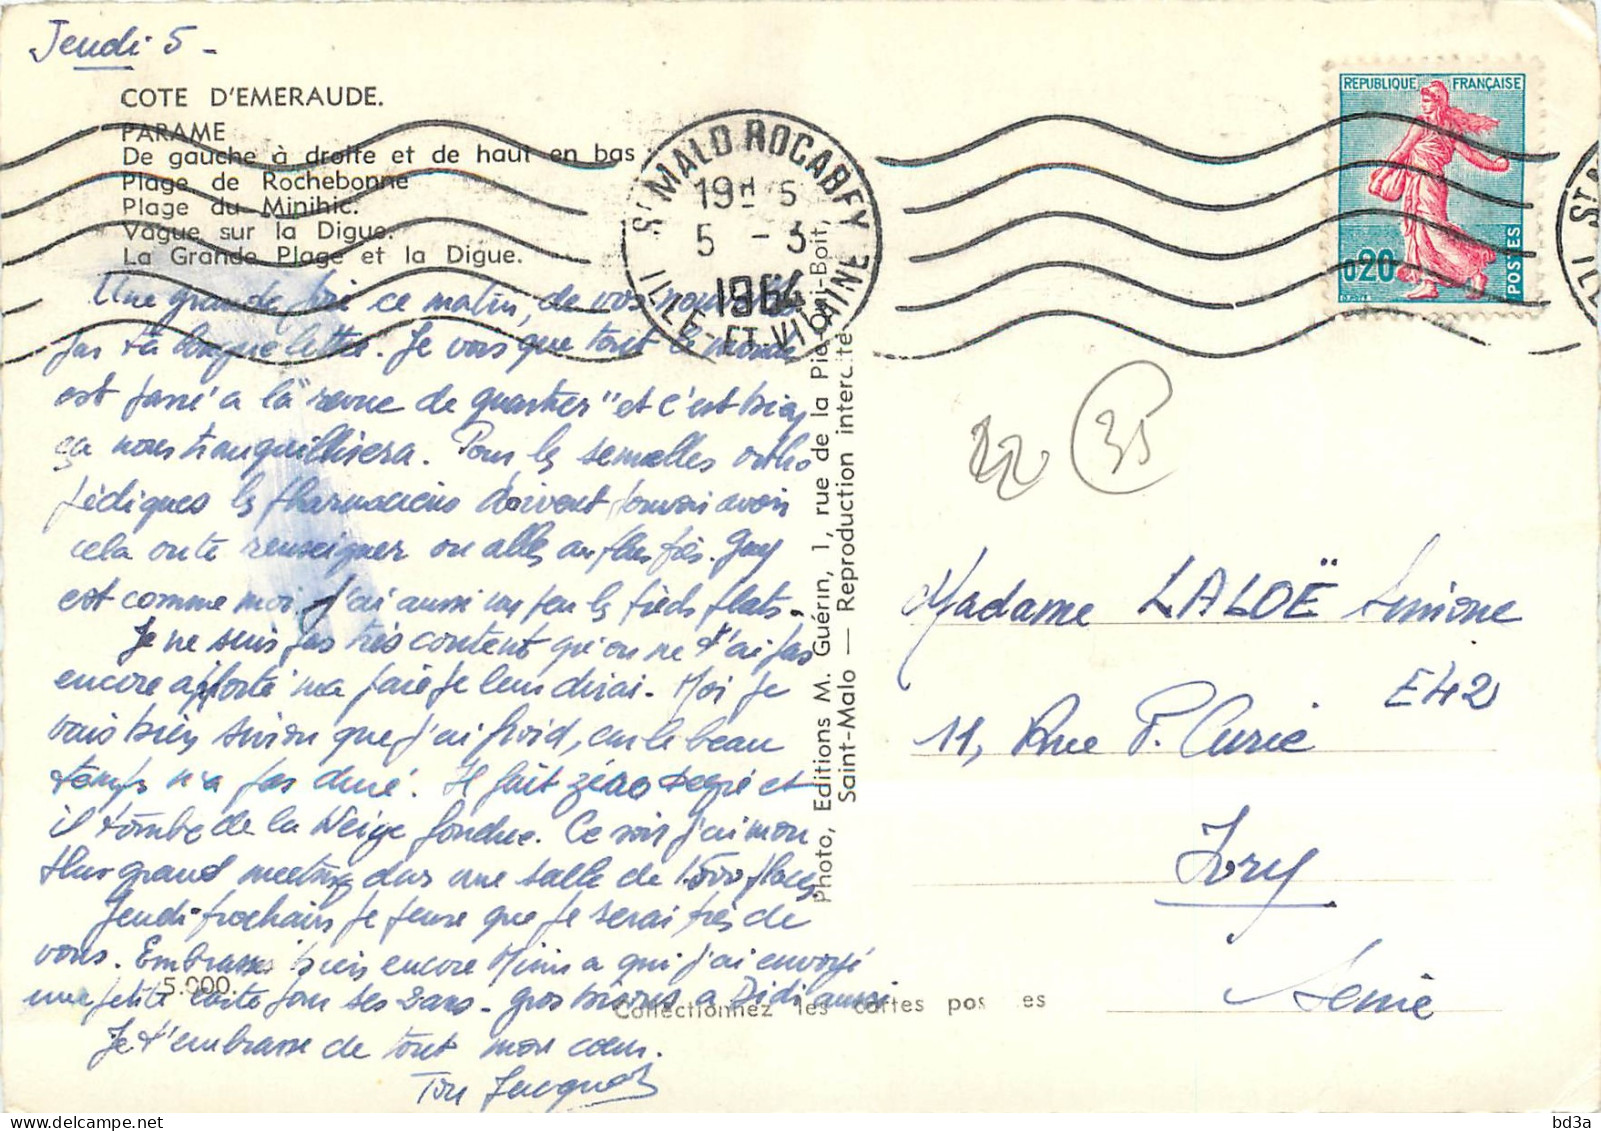 Jeudi 5 -
COTE D'EMERAUDE.
PARAME
De gauche à droite et de haut en bas
Plage de Rochebonne
Plage du Minihic.
Vague sur la Digue.
La Grande Plage et la Digue.
Une grande joie ce matin, de vos nouvelles
par ta longue lettre. Je vois que tout le monde
est passé a la "revue de quartier" et c'est bien
ça nous tranquillisera. Pour les semelles ortho
pédiques les pharmaciens doivent pouvoir avoir
cela ou te renseigner ou allez au plus près. Guy
est comme moi, j'ai aussi un peu les pieds plats.
Je ne suis pas très content qu'on ne t'ai pas
encore apporté ma paie je leur dirai. Moi je
vais bien sinon que j'ai froid, car le beau
temps n'a pas duré. Il fait zéro degré et
il tombe de la Neige fondue. Ce soir j'ai mon
plus grand meeting dans une salle de 1500 places
Jeudi prochain je pense que je serai près de
vous. Embrasse bien encore a qui j'ai envoyé
une petite carte pour ses 2 ans - gros bisous a Didi aussi
Je t'embrasse de tout mon cœur.
Ton Jacques
5.000.
Collectionnez les cartes postales
Photo, Editions M. Guérin, 1, rue de la Pie-qui-Boit,
Saint-Malo — Reproduction interdite
ST MALO ROCABEY
19H 5
5 - 3
1964
ILLE-ET-VILAINE
REPUBLIQUE FRANÇAISE
0,20
POSTES
ST
ILL
22 35
Madame LALOË Simone
E42
11, Rue P. Curie
Ivry
Seine
bd3a